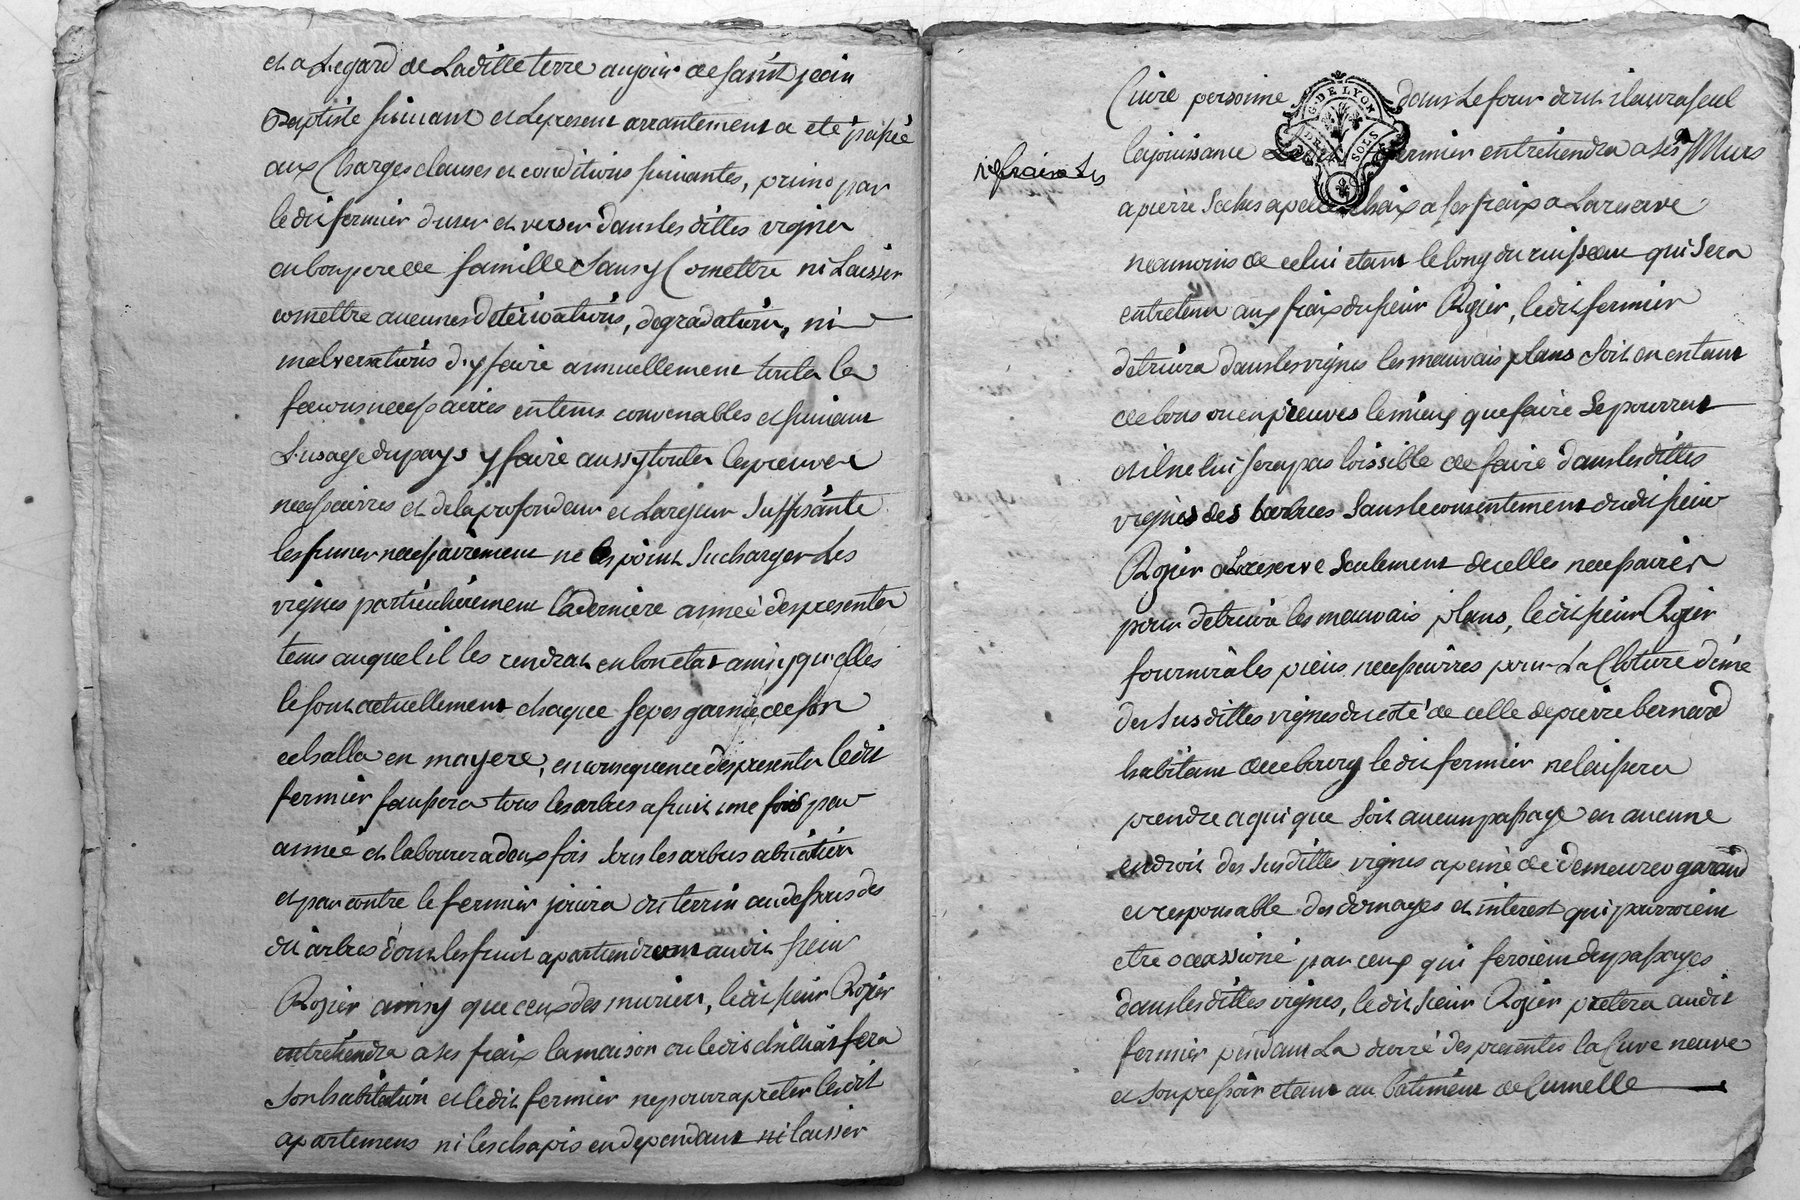 et a Legard de Laditte terre au jour de saint jean
Baptiste suivant et Lepresent arrantement a eté passé
aux Charges clauses et conditions suivantes, primo par
ledit fermier duser et verser dans les dittes vignes
en bon pere de famille sans y Comettre ni Laisser
comettre aucunes deteriorations, degradations, ni
malversations d'y faire annuellement toutes les
facons necessaires en tems convenables et suivant
L'usage du pays y faire aussy toutes les preuves
necessaires et de la profondeur et Largeur suffisante
les fumer necessairement ne les point surcharger Les
vignes particulierement la derniere année des presentes
tems auquel il les rendra en bon etat ainsy quelles
le sont actuellement chaque seps garnie de son
echalla en mayere, en consequence des presentes ledit
fermier faussera tous les arbres a fruit une fois par
année et labourera deux fois sous les arbres
et par contre le fermier jouira du terrin au dessous des
dit arbres dont les fruit apartiendront audit sieur
Rozier ainsy que ceux des muriers, ledit sieur Rozier
entretiendra a ses fraix la maison ou ledit fera
son habitation et ledit fermier ne pourra preter ledit
apartemens ni les chapis en dependant ni laisser
G. DE LYON
SOLS
Cuire personne dans Le four dont il aura seul
la jouissance fermier entretiendra a ses Murs
ses fraix Les
a pierre seches a ses fraix a Lareserve
neamoins de celui etant le long du ruisseau qui sera
entretenu aux fraix du sieur Rozier, ledit fermier
detruira dans les vignes les mauvais plans soit en entant
de bons ou en preuves le mieux que faire se pourrat
et il ne lui sera pas loissible de faire dans les dittes
vignes des barbues sans le consentement dudit sieur
Rozier a Lareserve seulement de celles necessaires
pour detruire les mauvais plans, ledit sieur Rozier
fournira les pieus necessaires pour La Cloture d'une
des susdittes vignes du coté de celle de pierre bernard
habitant de ce bourg ledit fermier ne laissera
prendre a qui que soit aucun passage en aucune
endroit des susdittes vignes a peine de demeurer garand
et responsable des domages et interest qui pourroient
etre occassioné par ceux qui feroient des passages
dans les dittes vignes, ledit sieur Rozier pretera audit
fermier pendant La durré des presentes la Cuve neuve
et son pressoir etant au batiment de Cumelle